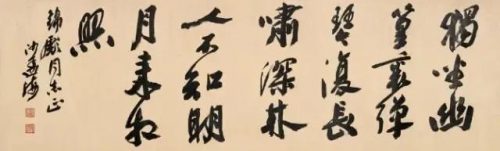 獨坐幽
篁裏彈
琴復長
嘯深林
人不知明
月来相
照
錦同志正
沙孟海